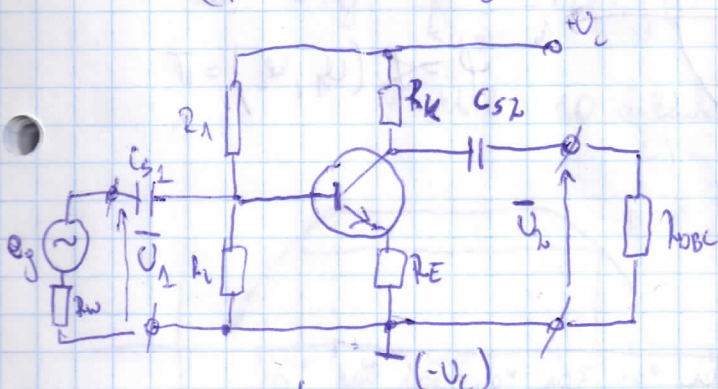 +Uc
R1
RK
Cs2
Cs1
eg
~
U̅1
R2
RE
U̅2
RW
ROBC
(-Uc)